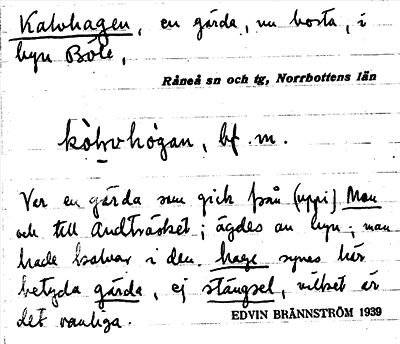 Kalvhagen, en gärda, nu borta, i
byn Böle,
Råneå sn och tg, Norrbottens län
kòl̥vhógan, bf. m.
Var en gärda som gick från (uppi) Mon
och till Andträsket; ägdes av byn, man
hade kalvar i den. hage synes här
betyda gärda, ej stängsel, vilket är
det vanliga.
EDVIN BRÄNNSTRÖM 1939